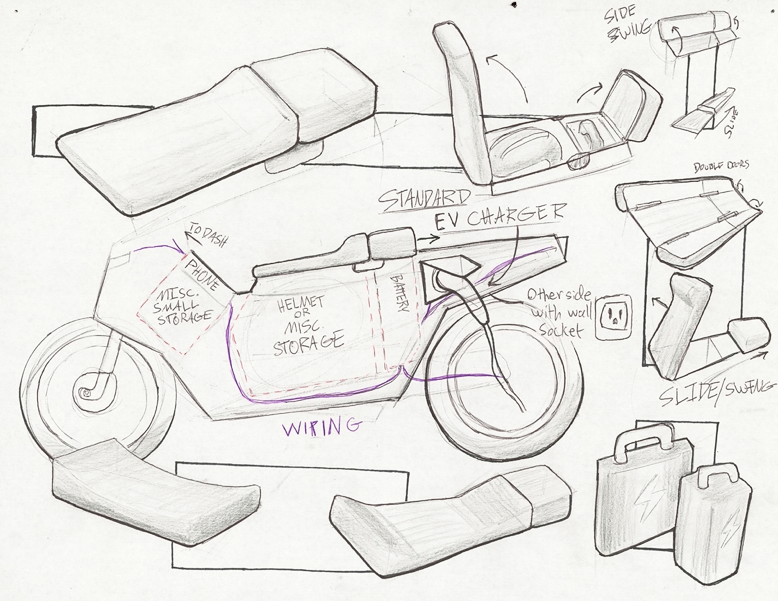 SIDE
SWING
DOUBLE DOORS
STANDARD
EV CHARGER
TO DASH
PHONE
MISC.
SMALL
STORAGE
HELMET
OR
MISC
STORAGE
BATTERY
Other side
with wall
socket
SLIDE/SWING
WIRING